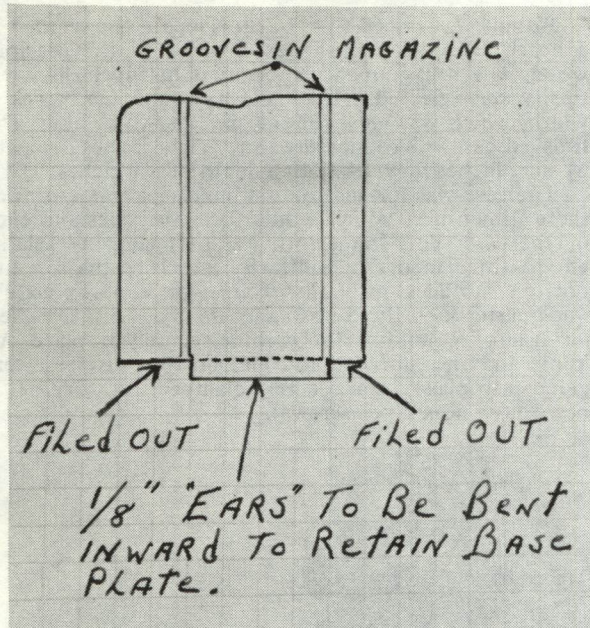 GROOVES IN MAGAZINE
FiLed OUT
FiLed OUT
1/8" "EARS" To Be Bent
INWARd To RetAIN BASE
PLATE.